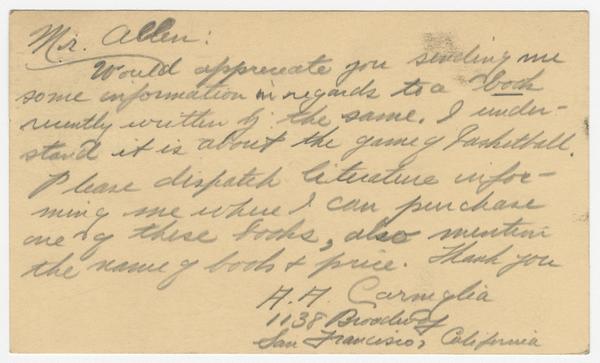 Mr. Allen:
Would appreceate you sending me
some information in regards to a book
recently written by the same. I under-
stand it is about the game of Basketball.
Please dispatch literature infor-
ming me where I can purchase
one of these books, also mention
the name of book & price. Thank you
A. A. Carniglia
1138 Broadway
San Francisco, California